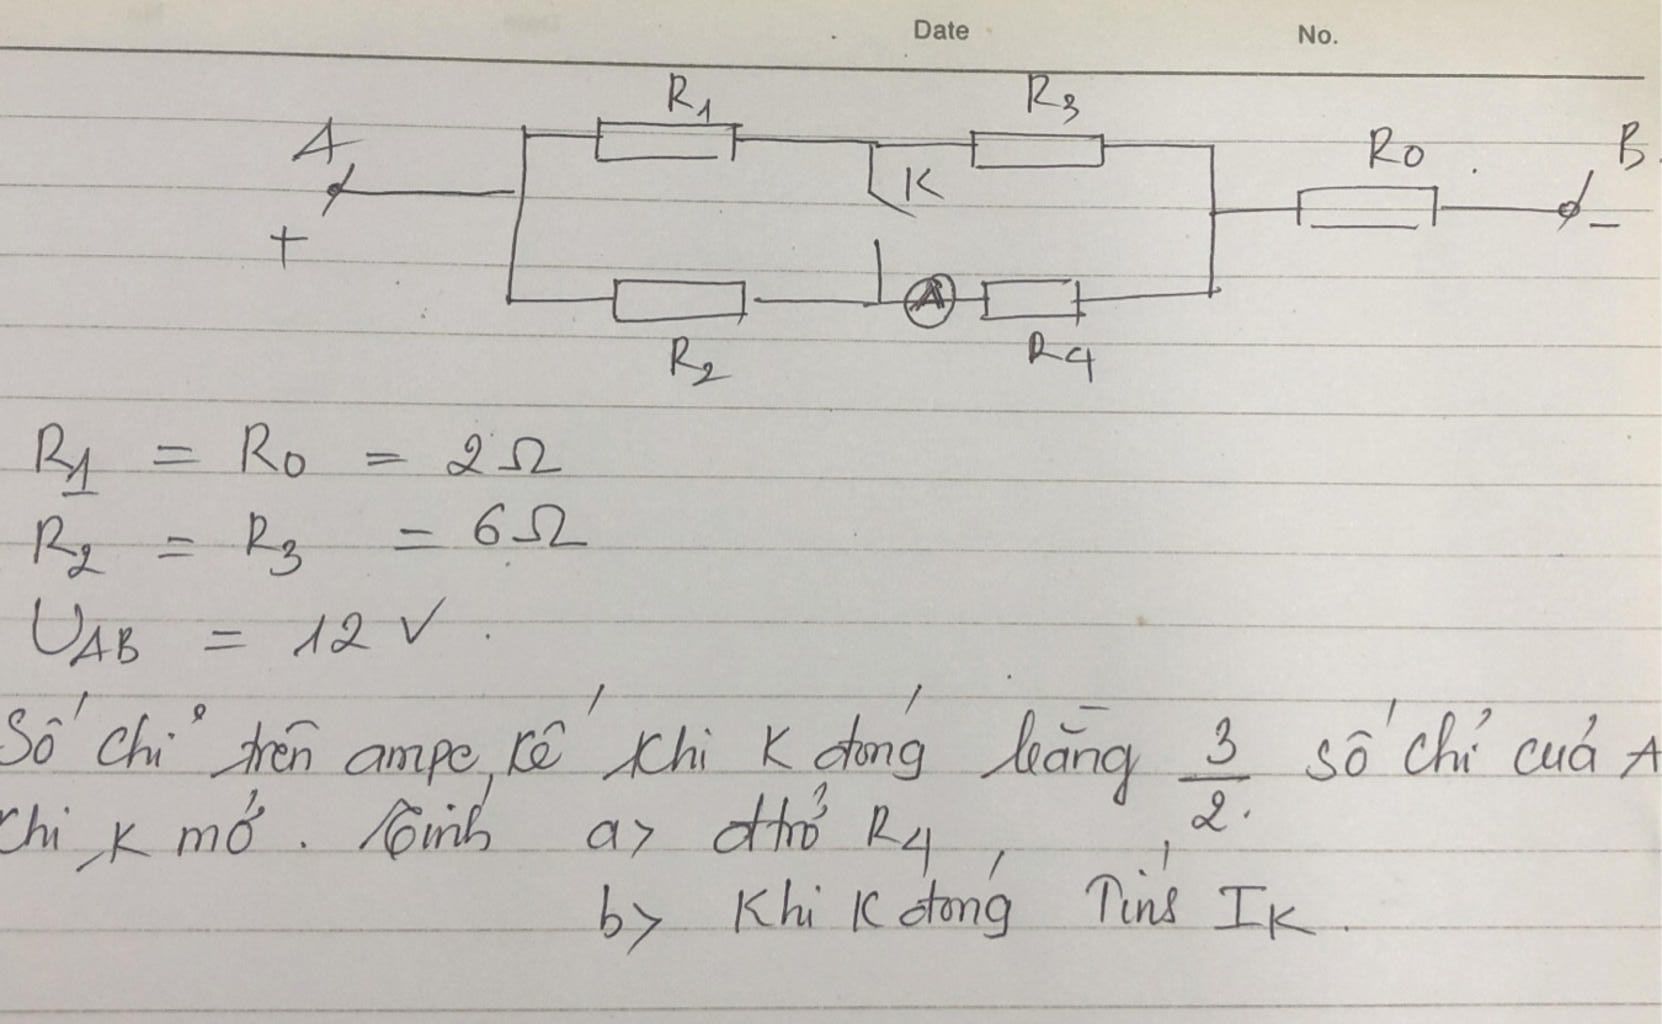 Date No.
R1 R3
A R0 B
K
+ -
A
R2 R4
R1 = R0 = 2Ω
R2 = R3 = 6Ω
UAB = 12 V.
Số chỉ trên ampe kế khi K đóng bằng 3/2 số chỉ của A
khi K mở. Tính a> đtrở R4,
b> Khi K đóng Tính IK.